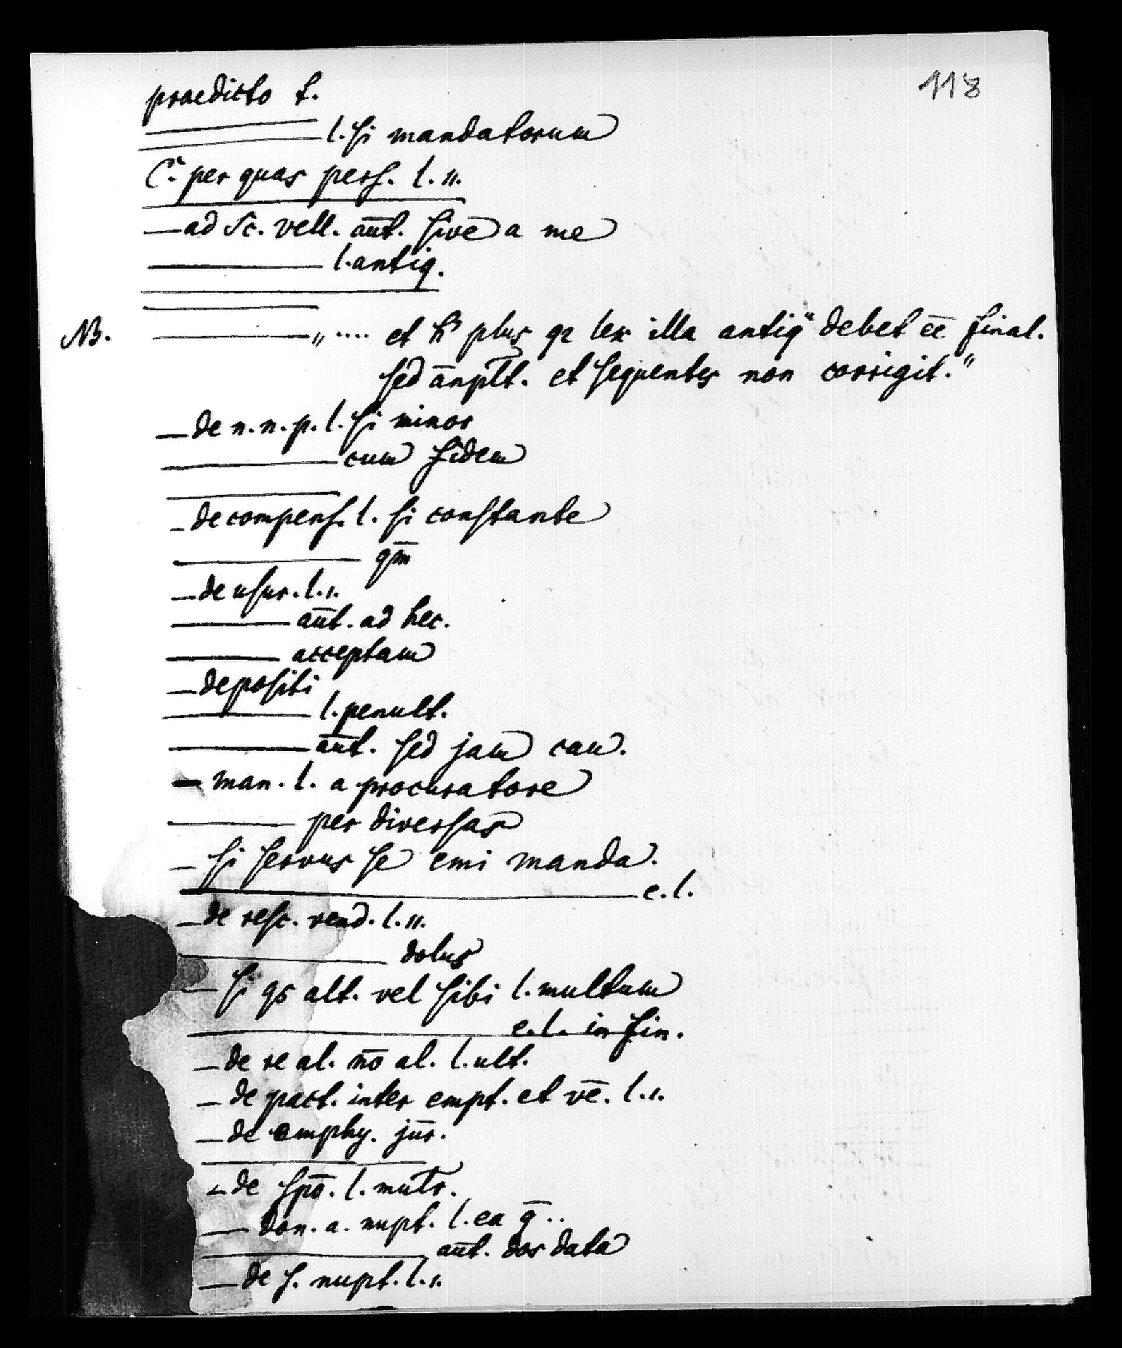 118
praedicto t.
l. si mandatorum
C. per quas pers. l. ii.
— ad sc. vell. aūt. sive a me
l. antiq.
NB. „ .... et h' plus q2 lex illa antiq' debet ēē final.
sed ānplt. et sequentes non corrigit."
— de n. n. p. l. si minor
cum fidem
— de compens. l. si constante
qm̄
— de usur. l. i.
aūt. ad hec.
acceptam
— depositi
l. penult.
aūt. sed jam cau.
— man. l. a procuratore
per diversas
— si servus se emi manda.
e. l.
— de resc. vend. l. ii.
dolus
— si qs alt. vel sibi l. multum
e. l. in fin.
— de re al. nō al. l. ult.
— de pact. inter empt. et vē. l. i.
— de emphy. jūr.
— de spō. l. mulr̄.
— don. a. nupt. l. ea q̄ ..
aūt. dos data
— de s. nupt. l. i.